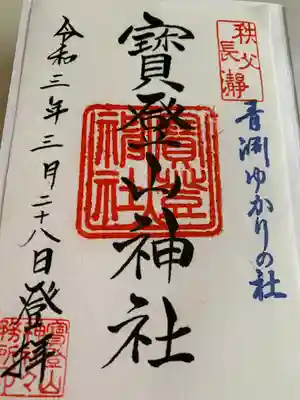 秩父
長瀞
青淵ゆかりの社
寶登山神社
寶登山
神社
令和三年三月二十八日登拝
寶登山
神社々
務所之